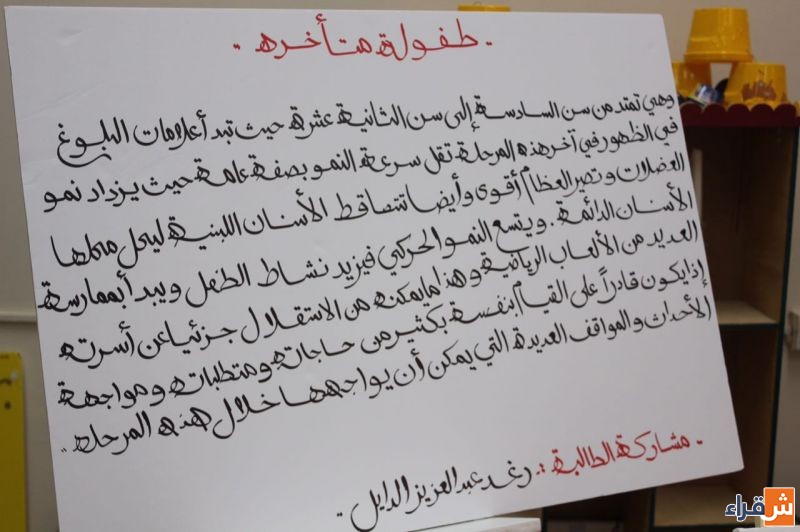 - طفولة متأخره -
وهي تمتد من سن السادسة إلى سن الثانية عشرة حيث تبدأ علامات البلوغ
في الظهور في آخر هذه المرحلة تقل سرعة النمو بصفة عامة حيث يزداد نمو
العضلات وتصير العظام أقوى وأيضا تتساقط الأسنان اللبنية ليحل محلها
الأسنان الدائمة . ويتسع النمو الحركي فيزيد نشاط الطفل ويبدأ بممارسة
العديد من الألعاب الرياضية وهذا ما يمكنه من الاستقلال جزئيا عن أسرته
إذ يكون قادراً على القيام بنفسة بكثير من حاجاته ومتطلباته ومواجهة
الأحداث والمواقف العديدة التي يمكن أن يواجهها خلال هذه المرحله ..
- مشاركة الطالبة :. رغد عبدالعزيز الدايل -
شقراء